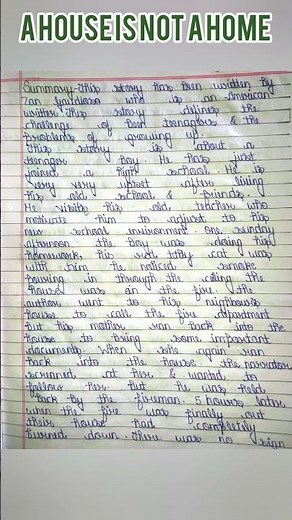 A HOUSE IS NOT A HOME
Summary-This story has been written by
Zan Gaudioso who is an American
writer. This story defines the
challenge of best teenagers & the
problems of growing up.
This story is about a
teenager boy. He has just
joined a high school. He is
very very upset after living
his old school & friends.
He visits his old teacher who
motivate him to adjust to his
new school environment. one sunday
afternoon the boy was doing his
homework, his red tabby cat was
with him he noticed smoke
pouring in through the ceiling the
house was on the fire the
authore went to his neighbours
house to call the fire department
but his mother ran back into the
house to bring some important
documents when she again ran
back into the house the narrator
screamed at her & wanted to
follow her. But he was held
back by the fireman. 5 hours later
when the fire was finally out
their house had completely
burned down. there was no sign